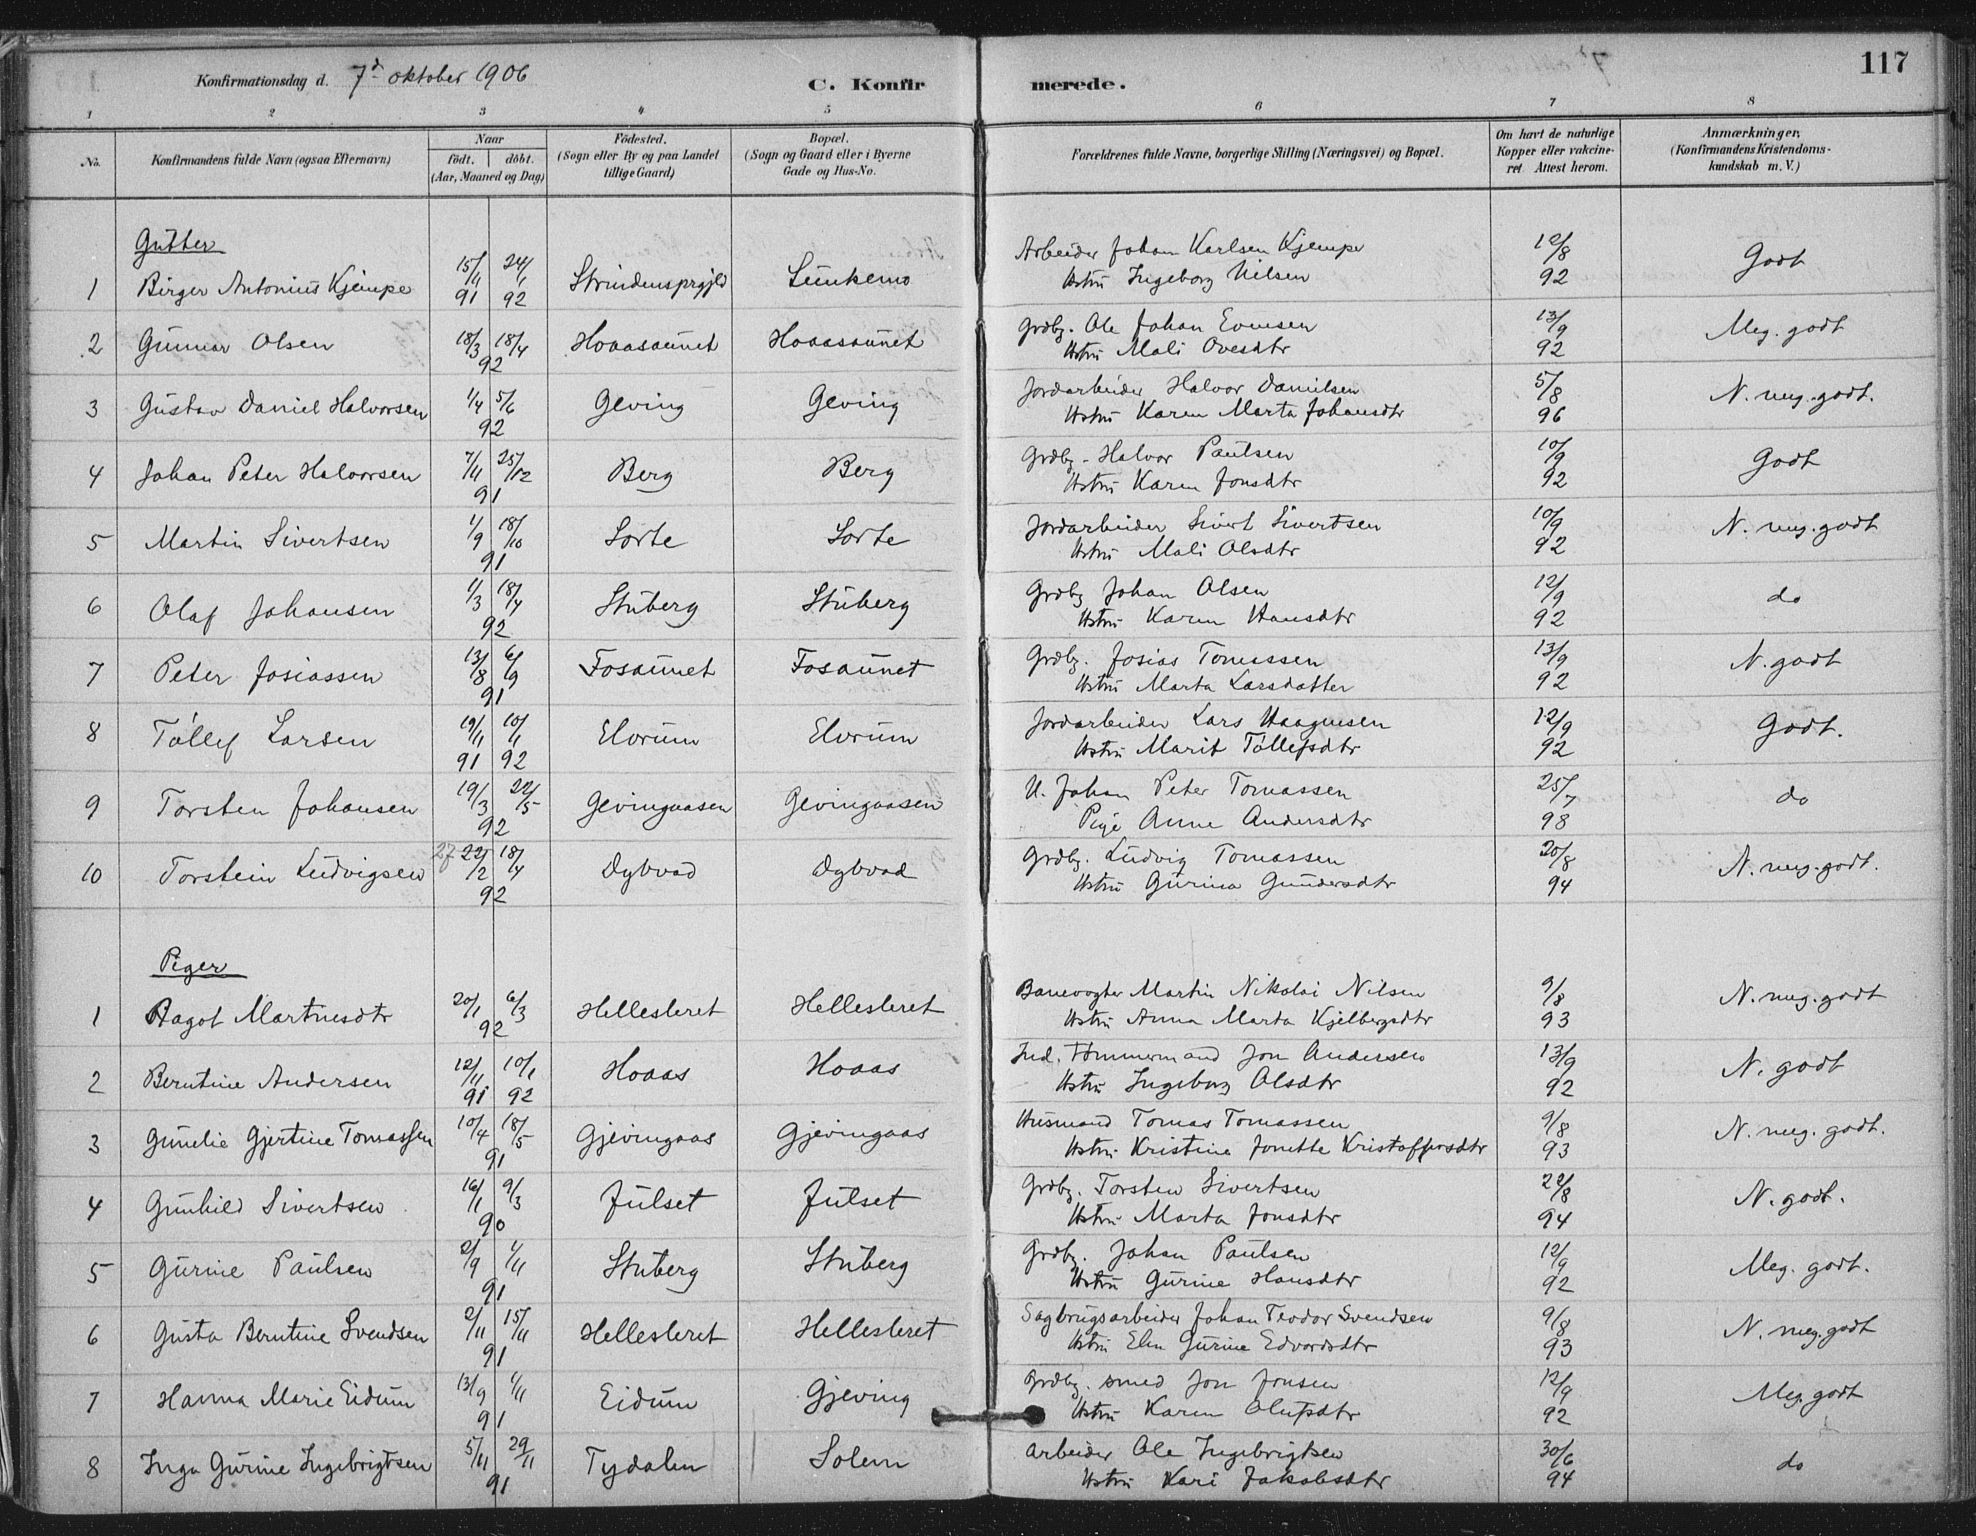 117
Konfirmationsdag d. 7d oktober 1906
C. Konfirmerede.
1 2 3 4 5 6 7 8
No.
Konfirmandens fulde Navn (ogsaa Efternavn)
Naar
födt. | döbt.
(Aar, Maaned og Dag)
Födested.
(Sogn eller By og paa Landet
tillige Gaard)
Bopæl.
(Sogn og Gaard eller i Byerne
Gade og Hus-No.
Forældrenes fulde Navne, borgerlige Stilling (Næringsvei) og Bopæl.
Om havt de naturlige
Kopper eller vakcine-
ret. Attest herom.
Anmærkninger.
(Konfirmandens Kristendoms-
kundskab m. V.)
Gutter
1 Birger Antonius Kjempe 15/11 91 24/1 92 Strindensprgjld Lunkemo Arbeider Johan Karlsen Kjempe 12/8 92 Godt
Hstru Ingeborg Nilsen
2 Gunnar Olsen 18/3 18/4 92 Hoaasaunet Hoaasaunet Grdbg. Ole Johan Evensen 13/9 92 Meg. godt
Hstru Mali Ovesdtr
3 Gustav Daniel Halvorsen 1/4 5/6 92 Geving Geving Jordarbeider Halvor Danielsen 5/8 96 N. meg. godt.
Hstru Karen Marta Johansdtr
4 Johan Peter Halvorsen 7/11 25/12 91 Berg Berg Grdbg. Halvor Paulsen 10/9 92 Godt
Hstru Karen Jonsdtr
5 Martin Sivertsen 1/9 18/10 91 Sorte Sorte Jordarbeider Sivert Sivertsen 10/9 92 N. meg. godt
Hstru Mali Olsdtr
6 Olaf Johansen 1/3 18/4 92 Stuberg Stuberg Grdbg Johan Olsen 12/9 92 do
Hstru Karen Hansdtr
7 Peter Josiassen 13/8 6/9 91 Fosaunet Fosaunet Grdbg. Josias Tomassen 13/9 92 N. godt
Hstru Marta Larsdatter
8 Tøllef Larsen 19/11 91 10/1 92 Elvrum Elvrum Jordarbeider Lars Haagensen 12/9 92 Godt.
Hstru Marit Tøllefsdtr
9 Torsten Johansen 19/3 22/5 92 Gevingaasen Gevingaasen U. Johan Peter Tomassen 25/7 98 do
Pige Anne Andersdtr
10 Torstein Ludvigsen 27 22/2 18/4 92 Dybvad Dybvad Grdbg. Ludvig Tomassen 20/8 94 N. meg. godt.
Hstru Gurina Gundersdtr
Piger
1 Ragot Martinesdtr 20/1 6/3 92 Hellesleret Hellesleret Banevogter Martin Nikolai Nilsen 9/8 93 N. meg. godt
Hstru Anna Marta Kjelbergsdtr
2 Berntine Andersen 12/11 91 10/1 92 Hoaas Hoaas Ind. Tømmermand Jon Andersen 13/9 92 N. godt
Hstru Ingeborg Olsdtr
3 Gunelie Gjertine Tomassen 10/4 18/5 91 Gjevingaas Gjevingaas Husmand Tomas Tomassen 9/8 93 N. meg. godt.
Hstru Kristine Jonette Kristoffersdtr
4 Gunhild Sivertsen 16/1 9/3 90 Julset Julset Grdbg. Torsten Sivertsen 22/8 94 N. godt.
Hstru Marta Jonsdtr
5 Gurine Paulsen 2/9 1/11 91 Stuberg Stuberg Grdbg. Johan Paulsen 12/9 92 Meg. godt.
Hstru Gurine Hansdtr
6 Gusta Berntine Svendsen 2/11 15/11 91 Hellesleret Hellesleret Sagbrugsarbeider Johan Teodor Svendsen 9/8 93 N. meg. godt
Hstru Elen Gurine Edvardsdtr
7 Hanna Marie Eidum 13/9 1/11 91 Eidum Gjeving Grdbg. smed Jon Jonsen 12/9 92 Meg. godt
Hstru Karen Olufsdtr
8 Inga Gurine Ingebrigtsen 5/11 29/11 91 Tydalen Solem Arbeider Ole Ingebrigtsen 30/6 94 do
Hstru Kari Jakobsdtr